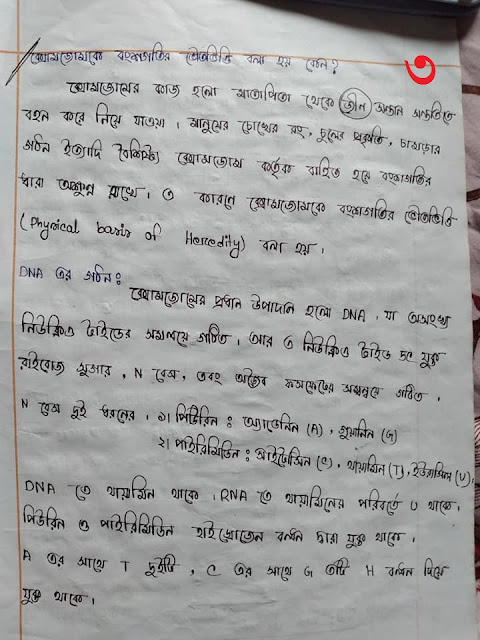 ক্রোমোজোমকে বংশগতির ভৌতভিত্তি বলা হয় কেন?
৩
ক্রোমোজোমের কাজ হলো মাতাপিতা থেকে জীন সন্তান সন্ততিতে
বহন করে নিয়ে যাওয়া। মানুষের চোখের রং, চুলের প্রকৃতি, চামড়ার
গঠন ইত্যাদি বৈশিষ্ট্য ক্রোমোজোম কর্তৃক বাহিত হয়ে বংশগতির
ধারা অক্ষুণ্ন রাখে। এ কারণে ক্রোমোজোমকে বংশগতির ভৌতভিত্তি
(Physical basis of Heredity) বলা হয়।
DNA এর গঠন:
ক্রোমোজোমের প্রধান উপাদান হলো DNA, যা অসংখ্য
নিউক্লিওটাইডের সমন্বয়ে গঠিত। আর এ নিউক্লিওটাইড 5C যুক্ত
রাইবোজ সুগার, N বেস, এবং অজৈব ফসফেটের সমন্বয়ে গঠিত।
N বেস দুই ধরনের। ১) পিউরিন: অ্যাডেনিন (A), গুয়ানিন (G)
২। পাইরিমিডিন: সাইটোসিন (C), থায়ামিন (T), ইউরাসিল (U),
DNA তে থায়ামিন থাকে। RNA তে থায়ামিনের পরিবর্তে U থাকে।
পিউরিন ও পাইরিমিডিন হাইড্রোজেন বন্ধন দ্বারা যুক্ত থাকে।
A এর সাথে T দুইটি, C এর সাথে G ৩টি H বন্ধন দিয়ে
যুক্ত থাকে।